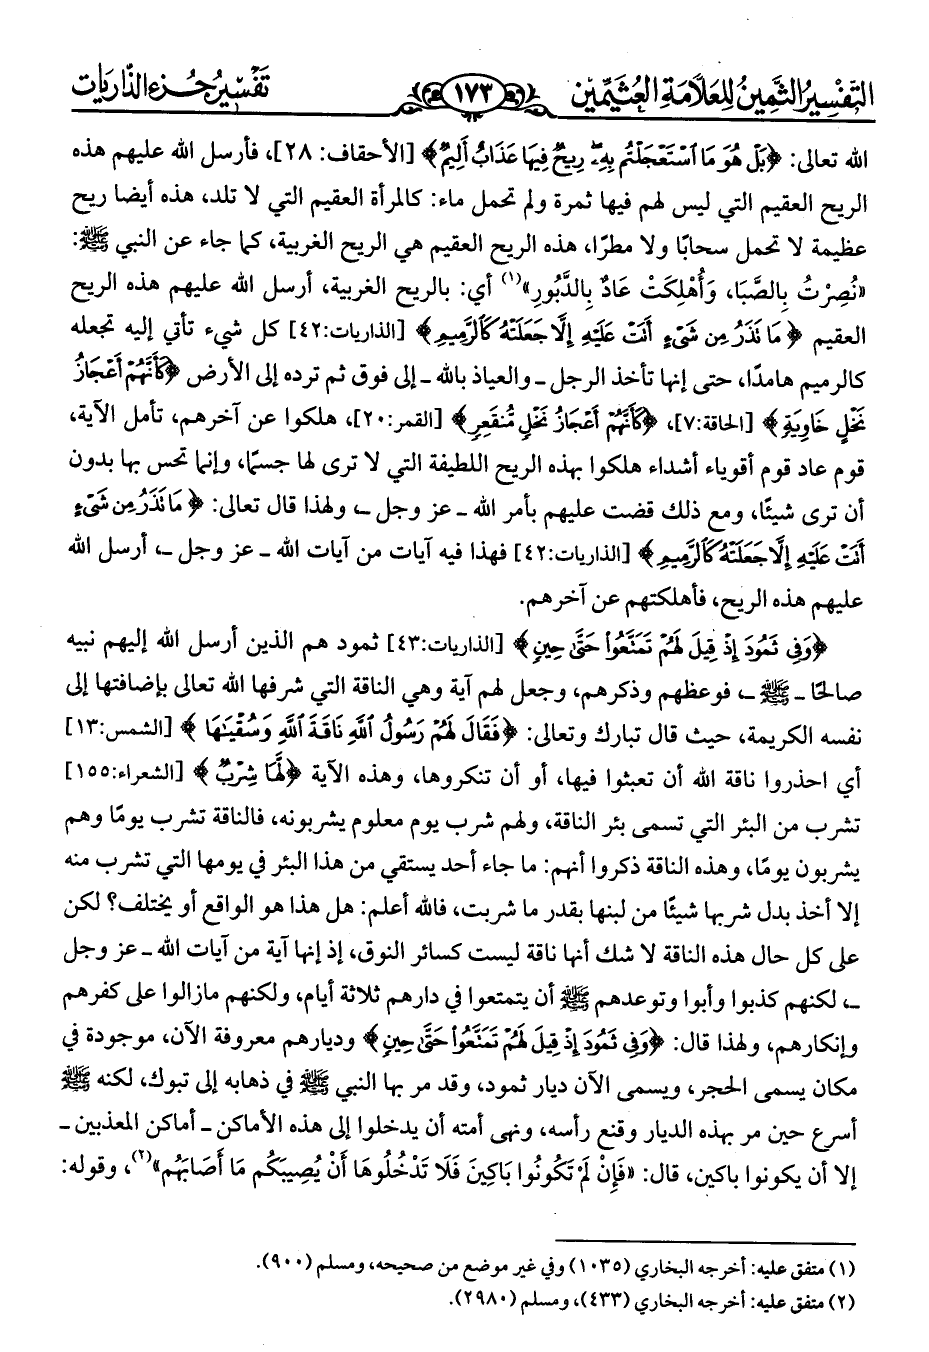 التفسير الثمين للعلامة العثيمين
١٧٣
تفسير جزء الذاريات
الله تعالى: ﴿بَلْ هُوَ مَا اسْتَعْجَلْتُم بِهِۦ رِيحٌ فِيهَا عَذَابٌ أَلِيمٌ﴾ [الأحقاف: ٢٨]، فأرسل الله عليهم هذه
الريح العقيم التي ليس لهم فيها ثمرة ولم تحمل ماء: كالمرأة العقيم التي لا تلد، هذه أيضا ريح
عظيمة لا تحمل سحابًا ولا مطرًا، هذه الريح العقيم هي الريح الغربية، كما جاء عن النبي ﷺ:
«نُصِرْتُ بِالصَّبَا، وَأُهْلِكَتْ عَادٌ بِالدَّبُورِ»(١) أي: بالريح الغربية، أرسل الله عليهم هذه الريح
العقيم ﴿مَا نَذَرُ مِن شَىْءٍ أَتَتْ عَلَيْهِ إِلَّا جَعَلَتْهُ كَالرَّمِيمِ﴾ [الذاريات:٤٢] كل شيء تأتي إليه تجعله
كالرميم هامدًا، حتى إنها تأخذ الرجل ـ والعياذ بالله ـ إلى فوق ثم ترده إلى الأرض ﴿كَأَنَّهُمْ أَعْجَازُ
نَخْلٍ خَاوِيَةٍ﴾ [الحاقة:٧]، ﴿كَأَنَّهُمْ أَعْجَازُ نَخْلٍ مُّنقَعِرٍ﴾ [القمر:٢٠]، هلكوا عن آخرهم، تأمل الآية،
قوم عاد قوم أقوياء أشداء هلكوا بهذه الريح اللطيفة التي لا ترى لها جسمًا، وإنما تحس بها بدون
أن ترى شيئًا، ومع ذلك قضت عليهم بأمر الله ـ عز وجل ـ، ولهذا قال تعالى: ﴿مَا نَذَرُ مِن شَىْءٍ
أَتَتْ عَلَيْهِ إِلَّا جَعَلَتْهُ كَالرَّمِيمِ﴾ [الذاريات:٤٢] فهذا فيه آيات من آيات الله ـ عز وجل ـ، أرسل الله
عليهم هذه الريح، فأهلكتهم عن آخرهم.
﴿وَفِى ثَمُودَ إِذْ قِيلَ لَهُمْ تَمَتَّعُوا۟ حَتَّىٰ حِينٍ﴾ [الذاريات:٤٣] ثمود هم الذين أرسل الله إليهم نبيه
صالحًا ـ ﷺ ـ، فوعظهم وذكرهم، وجعل لهم آية وهي الناقة التي شرفها الله تعالى بإضافتها إلى
نفسه الكريمة، حيث قال تبارك وتعالى: ﴿فَقَالَ لَهُمْ رَسُولُ ٱللَّهِ نَاقَةَ ٱللَّهِ وَسُقْيَٰهَا﴾ [الشمس:١٣]
أي احذروا ناقة الله أن تعبثوا فيها، أو أن تنكروها، وهذه الآية ﴿لَّهَا شِرْبٌ﴾ [الشعراء:١٥٥]
تشرب من البئر التي تسمى بئر الناقة، ولهم شرب يوم معلوم يشربونه، فالناقة تشرب يومًا وهم
يشربون يومًا، وهذه الناقة ذكروا أنهم: ما جاء أحد يستقي من هذا البئر في يومها التي تشرب منه
إلا أخذ بدل شربها شيئًا من لبنها بقدر ما شربت، فالله أعلم: هل هذا هو الواقع أو يختلف؟ لكن
على كل حال هذه الناقة لا شك أنها ناقة ليست كسائر النوق، إذ إنها آية من آيات الله ـ عز وجل
ـ، لكنهم كذبوا وأبوا وتوعدهم ﷺ أن يتمتعوا في دارهم ثلاثة أيام، ولكنهم مازالوا على كفرهم
وإنكارهم، ولهذا قال: ﴿وَفِى ثَمُودَ إِذْ قِيلَ لَهُمْ تَمَتَّعُوا۟ حَتَّىٰ حِينٍ﴾ وديارهم معروفة الآن، موجودة في
مكان يسمى الحجر، ويسمى الآن ديار ثمود، وقد مر بها النبي ﷺ في ذهابه إلى تبوك، لكنه ﷺ
أسرع حين مر بهذه الديار وقنع رأسه، ونهى أمته أن يدخلوا إلى هذه الأماكن ـ أماكن المعذبين ـ
إلا أن يكونوا باكين، قال: «فَإِنْ لَمْ تَكُونُوا بَاكِينَ فَلَا تَدْخُلُوهَا أَنْ يُصِيبَكُم مَا أَصَابَهُم»(٢)، وقوله:
(١) متفق عليه: أخرجه البخاري (١٠٣٥) وفي غير موضع من صحيحه، ومسلم (٩٠٠).
(٢) متفق عليه: أخرجه البخاري (٤٣٣)، ومسلم (٢٩٨٠).